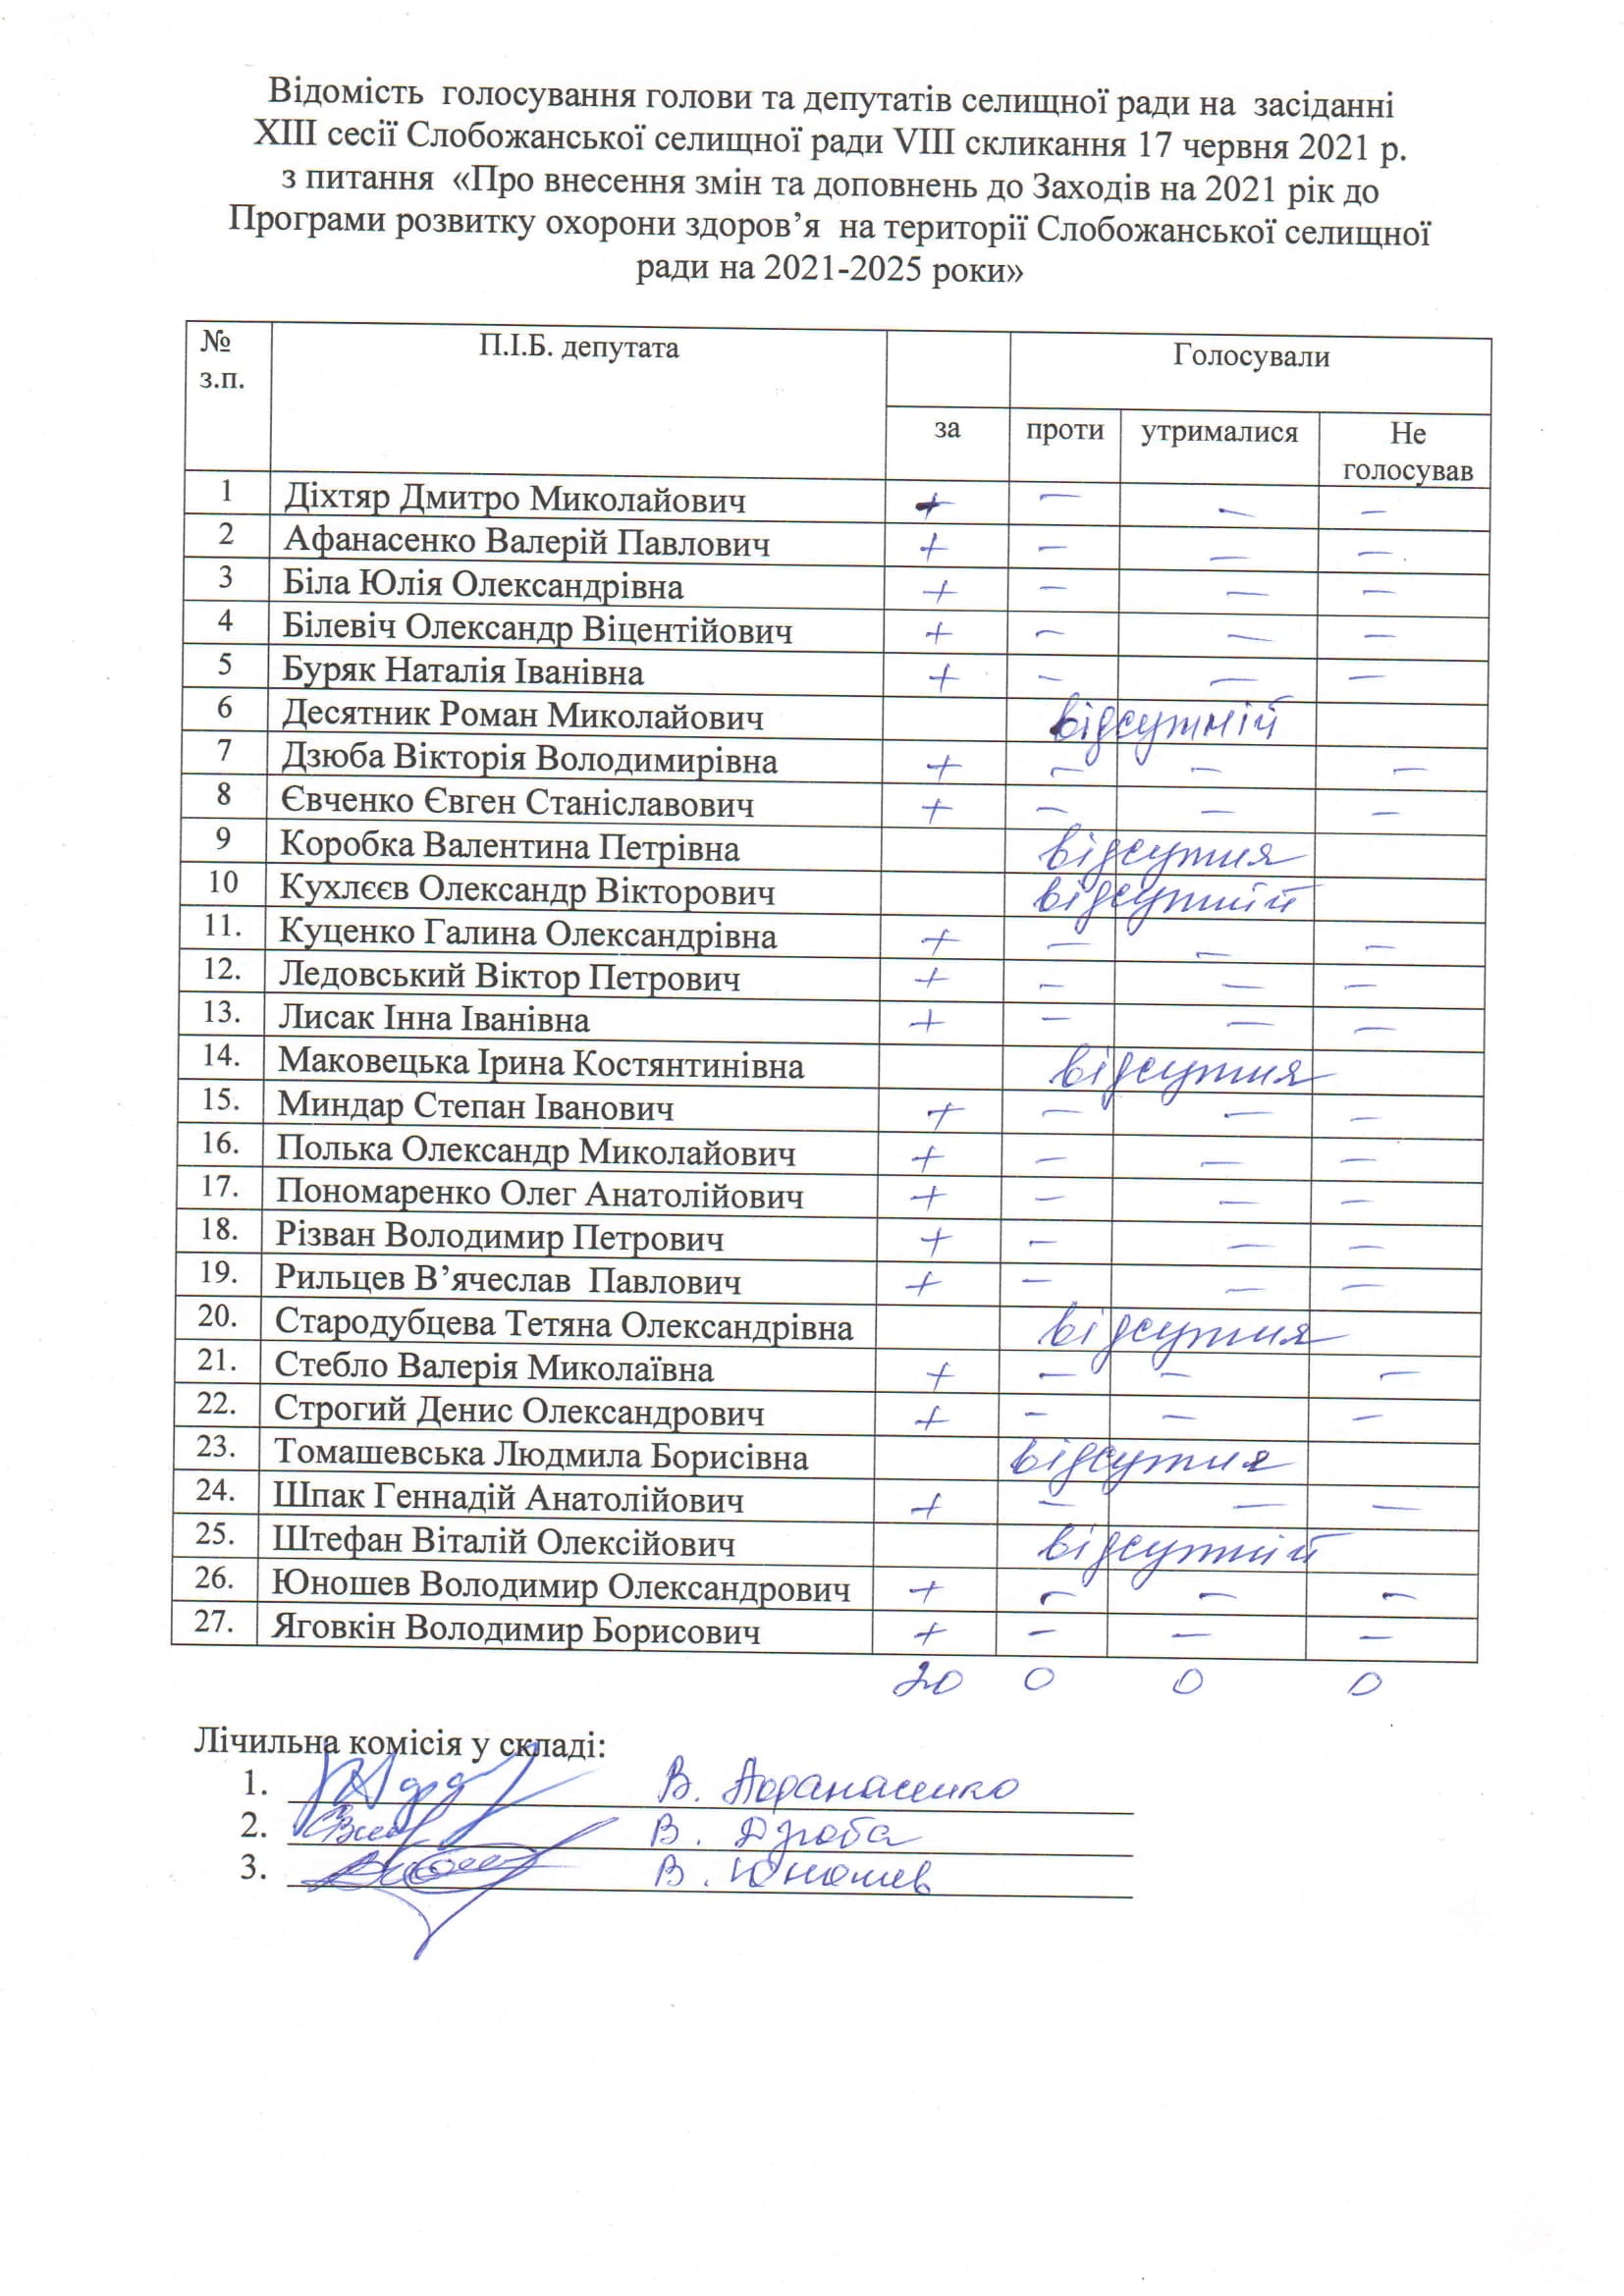 Відомість голосування голови та депутатів селищної ради на засіданні
XIII сесії Слобожанської селищної ради VIII скликання 17 червня 2021 р.
з питання «Про внесення змін та доповнень до Заходів на 2021 рік до
Програми розвитку охорони здоров’я на території Слобожанської селищної
ради на 2021-2025 роки»
№ з.п. П.І.Б. депутата Голосували
за проти утрималися Не голосував
1 Діхтяр Дмитро Миколайович + – – –
2 Афанасенко Валерій Павлович + – – –
3 Біла Юлія Олександрівна + – – –
4 Білевіч Олександр Віцентійович + – – –
5 Буряк Наталія Іванівна + – – –
6 Десятник Роман Миколайович відсутній
7 Дзюба Вікторія Володимирівна + – – –
8 Євченко Євген Станіславович + – – –
9 Коробка Валентина Петрівна відсутня
10 Кухлєєв Олександр Вікторович відсутній
11. Куценко Галина Олександрівна + – – –
12. Ледовський Віктор Петрович + – – –
13. Лисак Інна Іванівна + – – –
14. Маковецька Ірина Костянтинівна відсутня
15. Миндар Степан Іванович + – – –
16. Полька Олександр Миколайович + – – –
17. Пономаренко Олег Анатолійович + – – –
18. Різван Володимир Петрович + – – –
19. Рильцев В’ячеслав Павлович + – – –
20. Стародубцева Тетяна Олександрівна відсутня
21. Стебло Валерія Миколаївна + – – –
22. Строгий Денис Олександрович + – – –
23. Томашевська Людмила Борисівна відсутня
24. Шпак Геннадій Анатолійович + – – –
25. Штефан Віталій Олексійович відсутній
26. Юношев Володимир Олександрович + – – –
27. Яговкін Володимир Борисович + – – –
20 0 0 0
Лічильна комісія у складі:
1. В. Афанасенко
2. В. Дзюба
3. В. Юношев